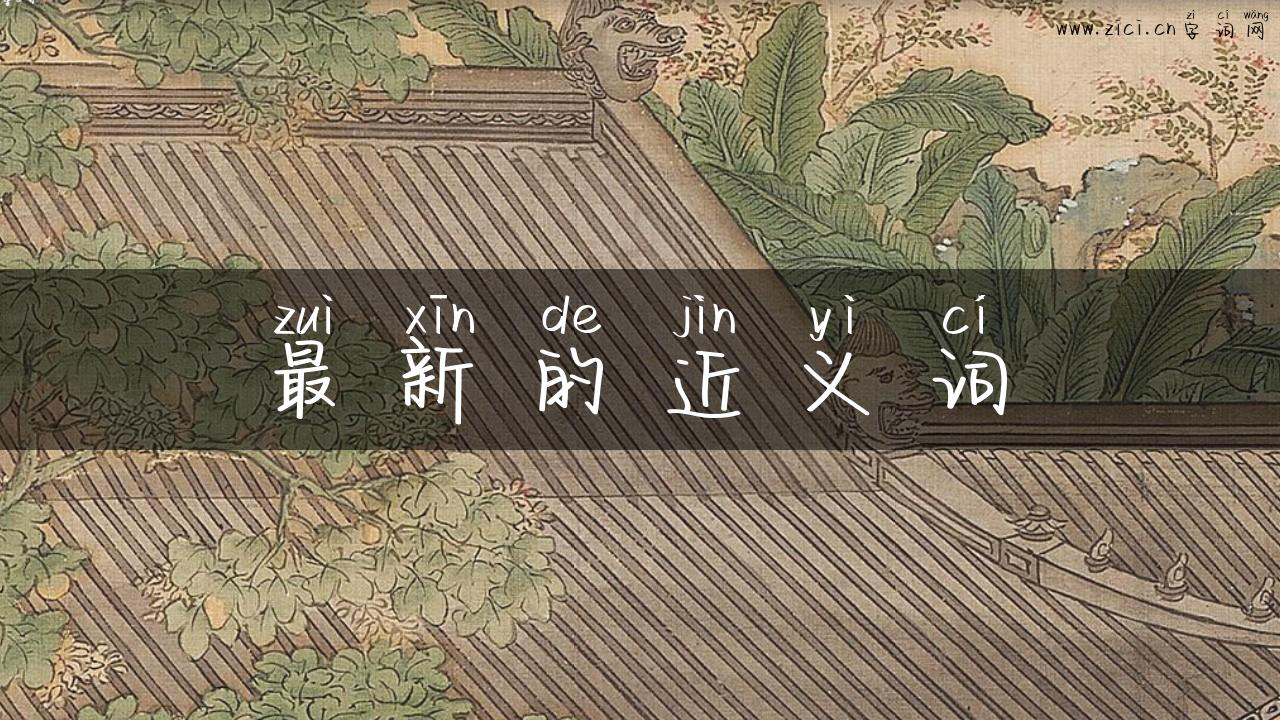 zì cí wǎng
www.zici.cn 字 词 网
zuì xīn de jìn yì cí
最 新 的 近 义 词